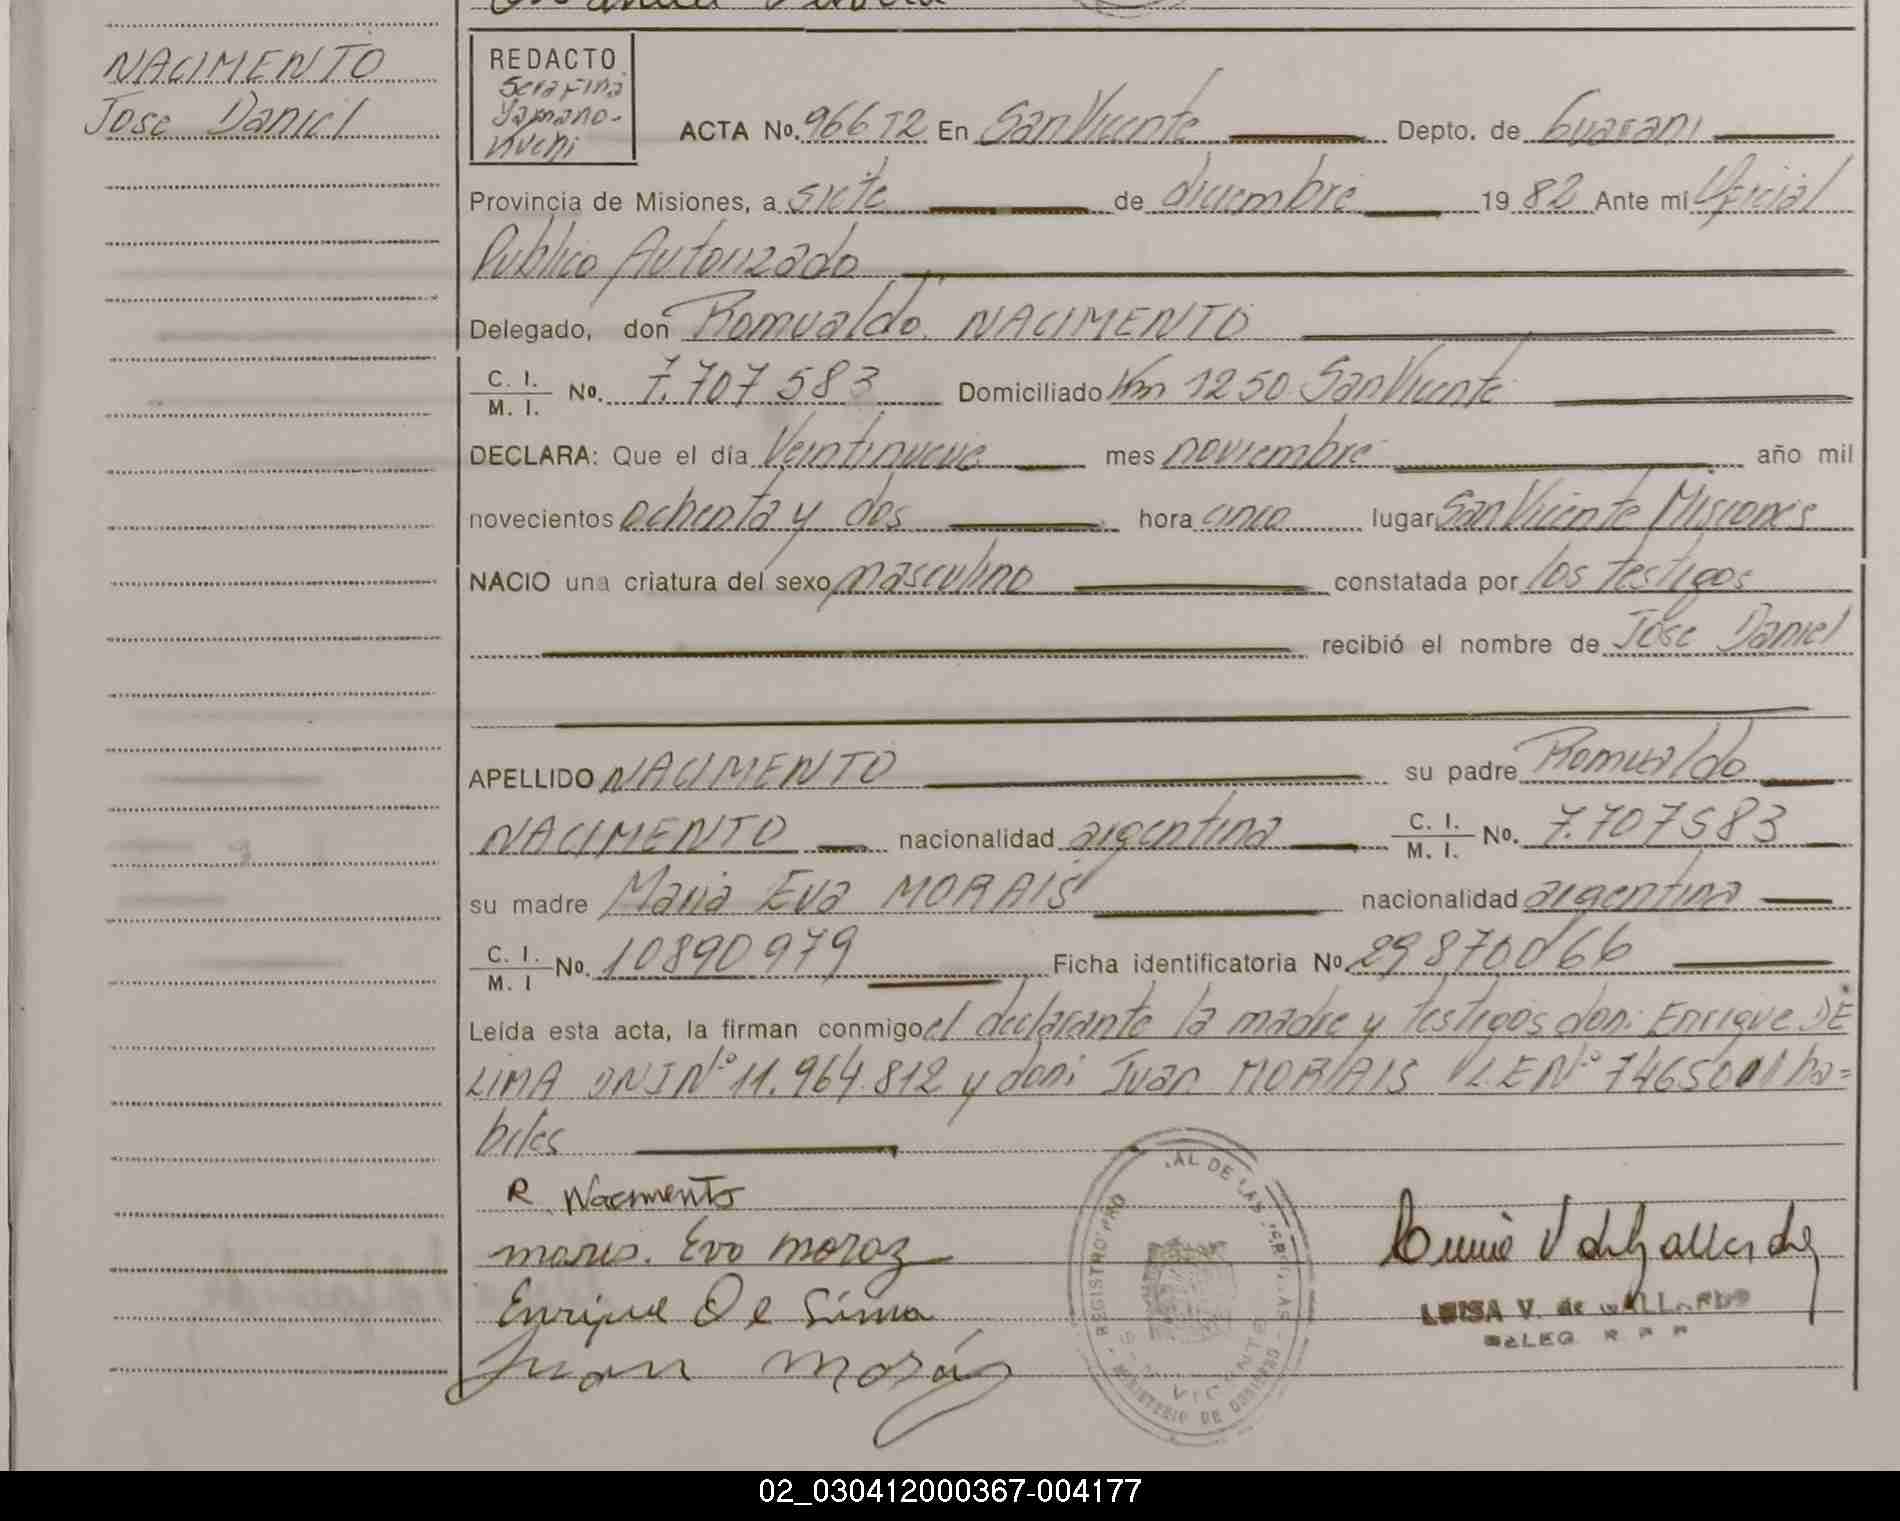 NACIMENTO
Jose Daniel
REDACTO
Serafina
Yamano-
ACTA No. 966 T2 En San Vicente Depto. de Guarani
Provincia de Misiones, a siete de diciembre 19 82 Ante mi Oficial
Publico Autorizado
Delegado, don Romualdo NACIMENTO
C. I.
M. I. No. 7.707 583 Domiciliado Km 1250 San Vicente
DECLARA: Que el día Veintinueve mes noviembre año mil
novecientos ochenta y dos hora cinco lugar San Vicente Misiones
NACIO una criatura del sexo masculino constatada por los testigos
recibió el nombre de Jose Daniel
APELLIDO NACIMENTO su padre Romualdo
NACIMENTO nacionalidad argentina C. I. M. I. No. 7.707583
su madre Maria Eva MORAIS nacionalidad argentina
C. I. M. I No. 10890979 Ficha identificatoria No. 29870066
Leída esta acta, la firman conmigo el declarante la madre y testigos don: Enrique DE
LIMA DNI Nº 11.964.812 y don: Juan MORAIS L.E Nº 7465001 ha=
biles
R Nacimento
maria. Eva moraz
Enrique De Lima
Juan Moráz
REGISTRO PRO AL DE LAS PERSONAS - MINISTERIO DE GOBIERNO -
VICENTE
LUISA V. de GALLARDO
DELEG. R P P
02_030412000367-004177